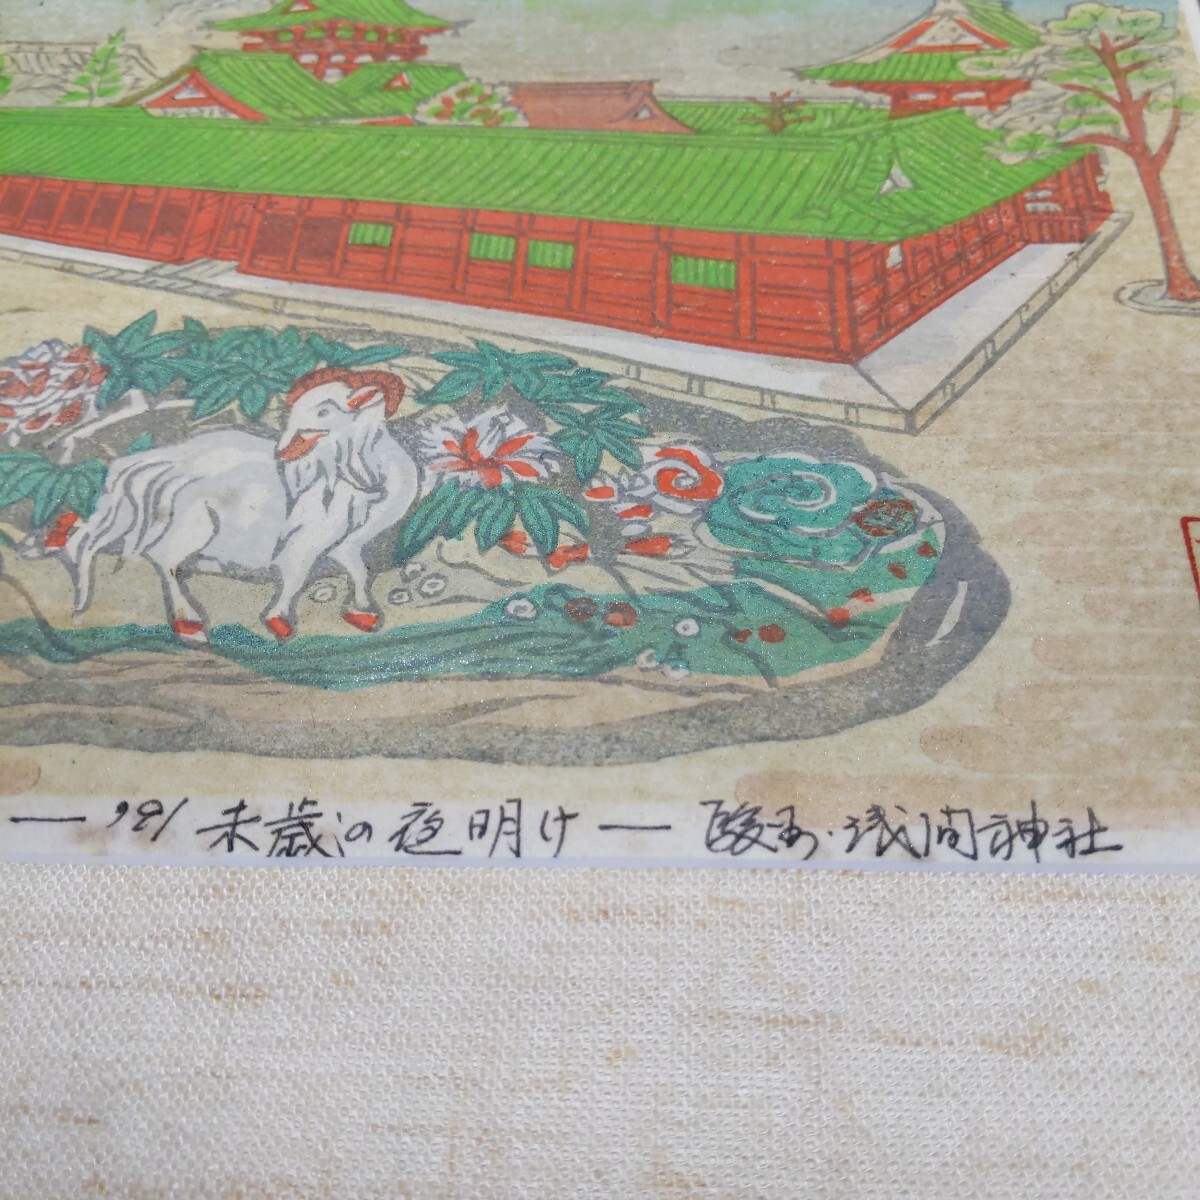 — '91 未歳の夜明け — 駿府・浅間神社